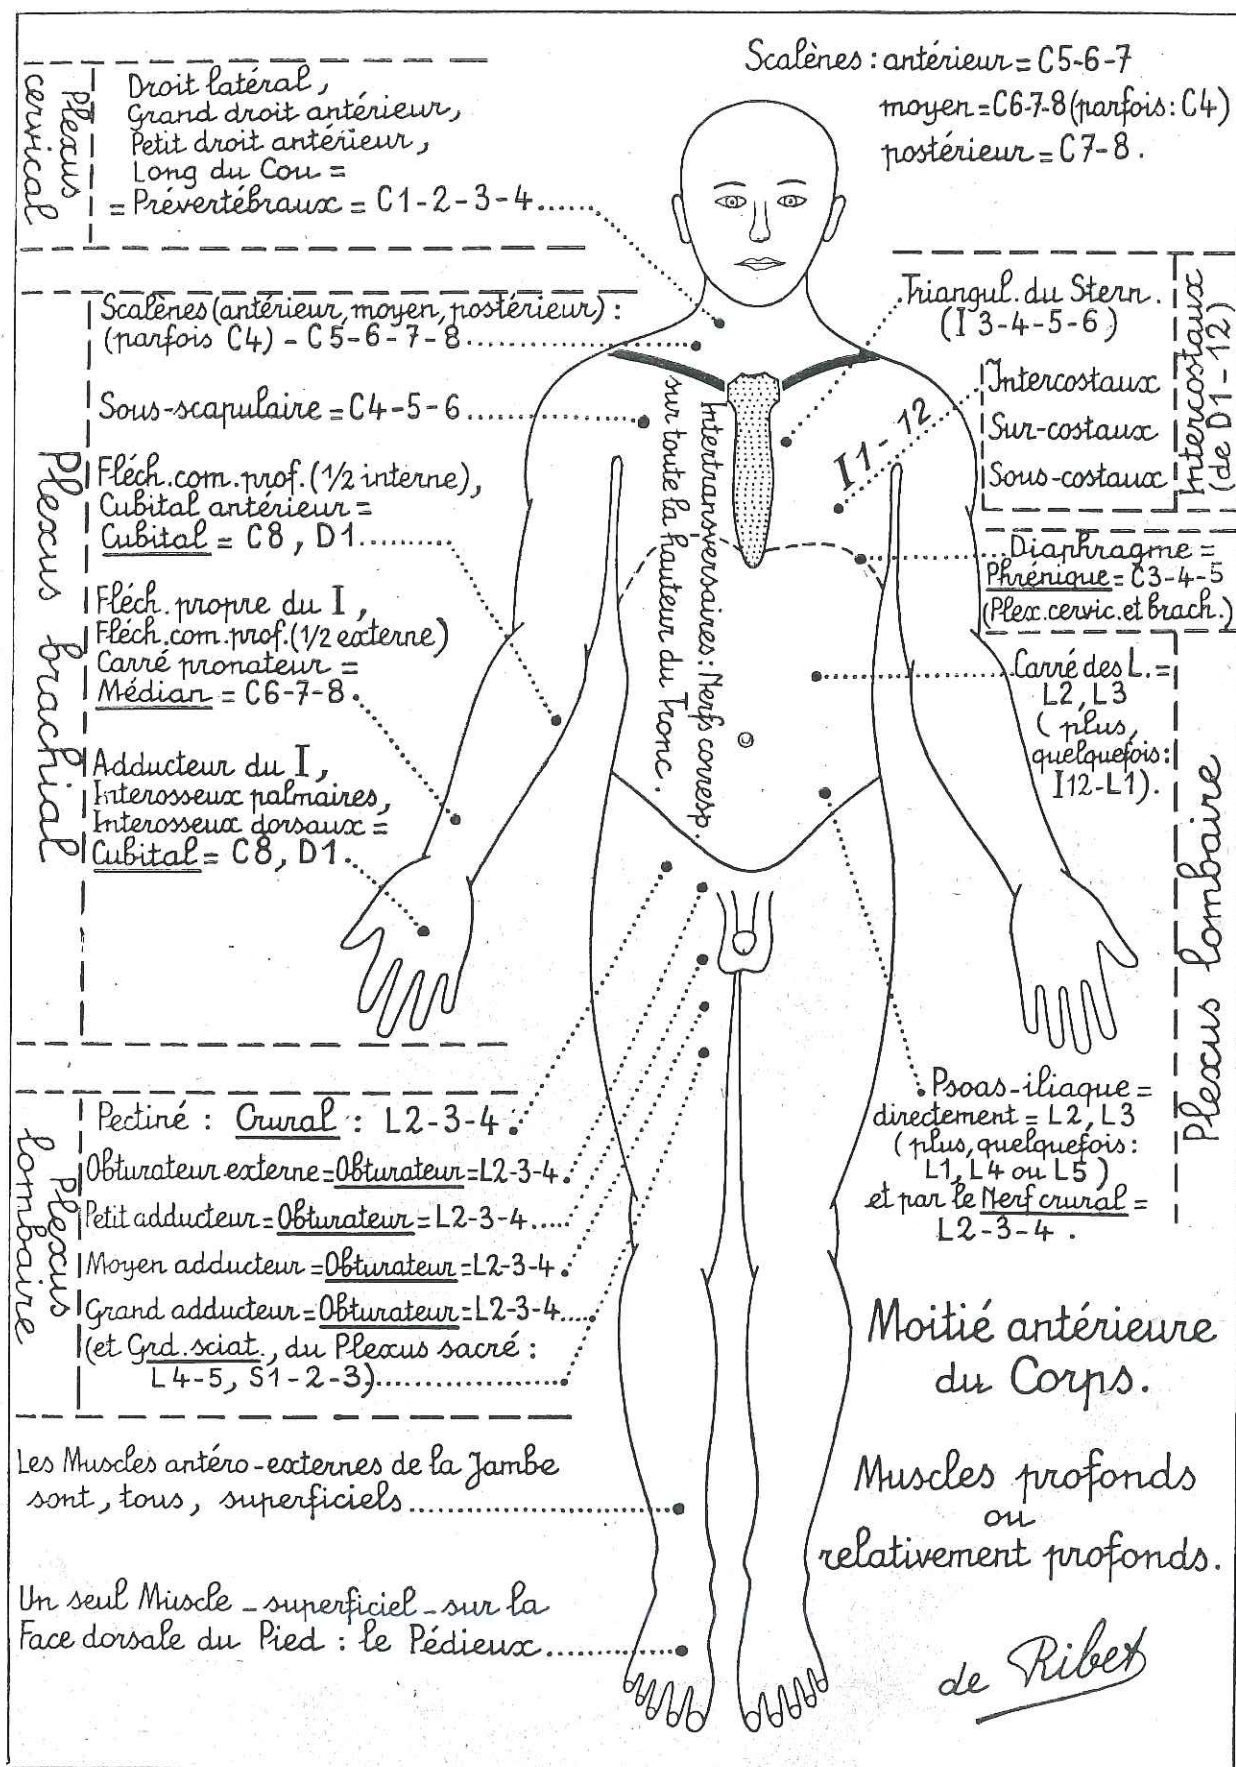 Scalènes : antérieur = C5-6-7
moyen = C6-7-8 (parfois : C4)
postérieur = C7-8.
Plexus
cervical
Droit latéral,
Grand droit antérieur,
Petit droit antérieur,
Long du Cou =
= Prévertébraux = C1-2-3-4
Plexus brachial
Scalènes (antérieur, moyen, postérieur) :
(parfois C4) - C5-6-7-8
Sous-scapulaire = C4-5-6
Fléch. com. prof. (1/2 interne),
Cubital antérieur =
Cubital = C8, D1
Fléch. propre du I,
Fléch. com. prof. (1/2 externe)
Carré pronateur =
Médian = C6-7-8.
Adducteur du I,
Interosseux palmaires,
Interosseux dorsaux =
Cubital = C8, D1.
Intertransversaires : Nerfs corresp.
sur toute la hauteur du Tronc.
Triangul. du Stern.
(I 3-4-5-6)
I 1-12
Intercostaux
Sur-costaux
Sous-costaux
Intercostaux
(de D1-12)
Diaphragme =
Phrénique = C3-4-5
(Plex. cervic. et brach.)
Plexus lombaire
Carré des L. =
L2, L3
(plus,
quelquefois :
I12-L1).
Psoas-iliaque =
directement = L2, L3
(plus, quelquefois :
L1, L4 ou L5)
et par le Nerf crural =
L2-3-4.
Plexus
lombaire
Pectiné : Crural : L2-3-4
Obturateur externe = Obturateur = L2-3-4
Petit adducteur = Obturateur = L2-3-4
Moyen adducteur = Obturateur = L2-3-4
Grand adducteur = Obturateur = L2-3-4
(et Grd. sciat., du Plexus sacré :
L4-5, S1-2-3)
Les Muscles antéro-externes de la Jambe
sont, tous, superficiels
Un seul Muscle - superficiel - sur la
Face dorsale du Pied : le Pédieux
Moitié antérieure
du Corps.
Muscles profonds
ou
relativement profonds.
de Ribet